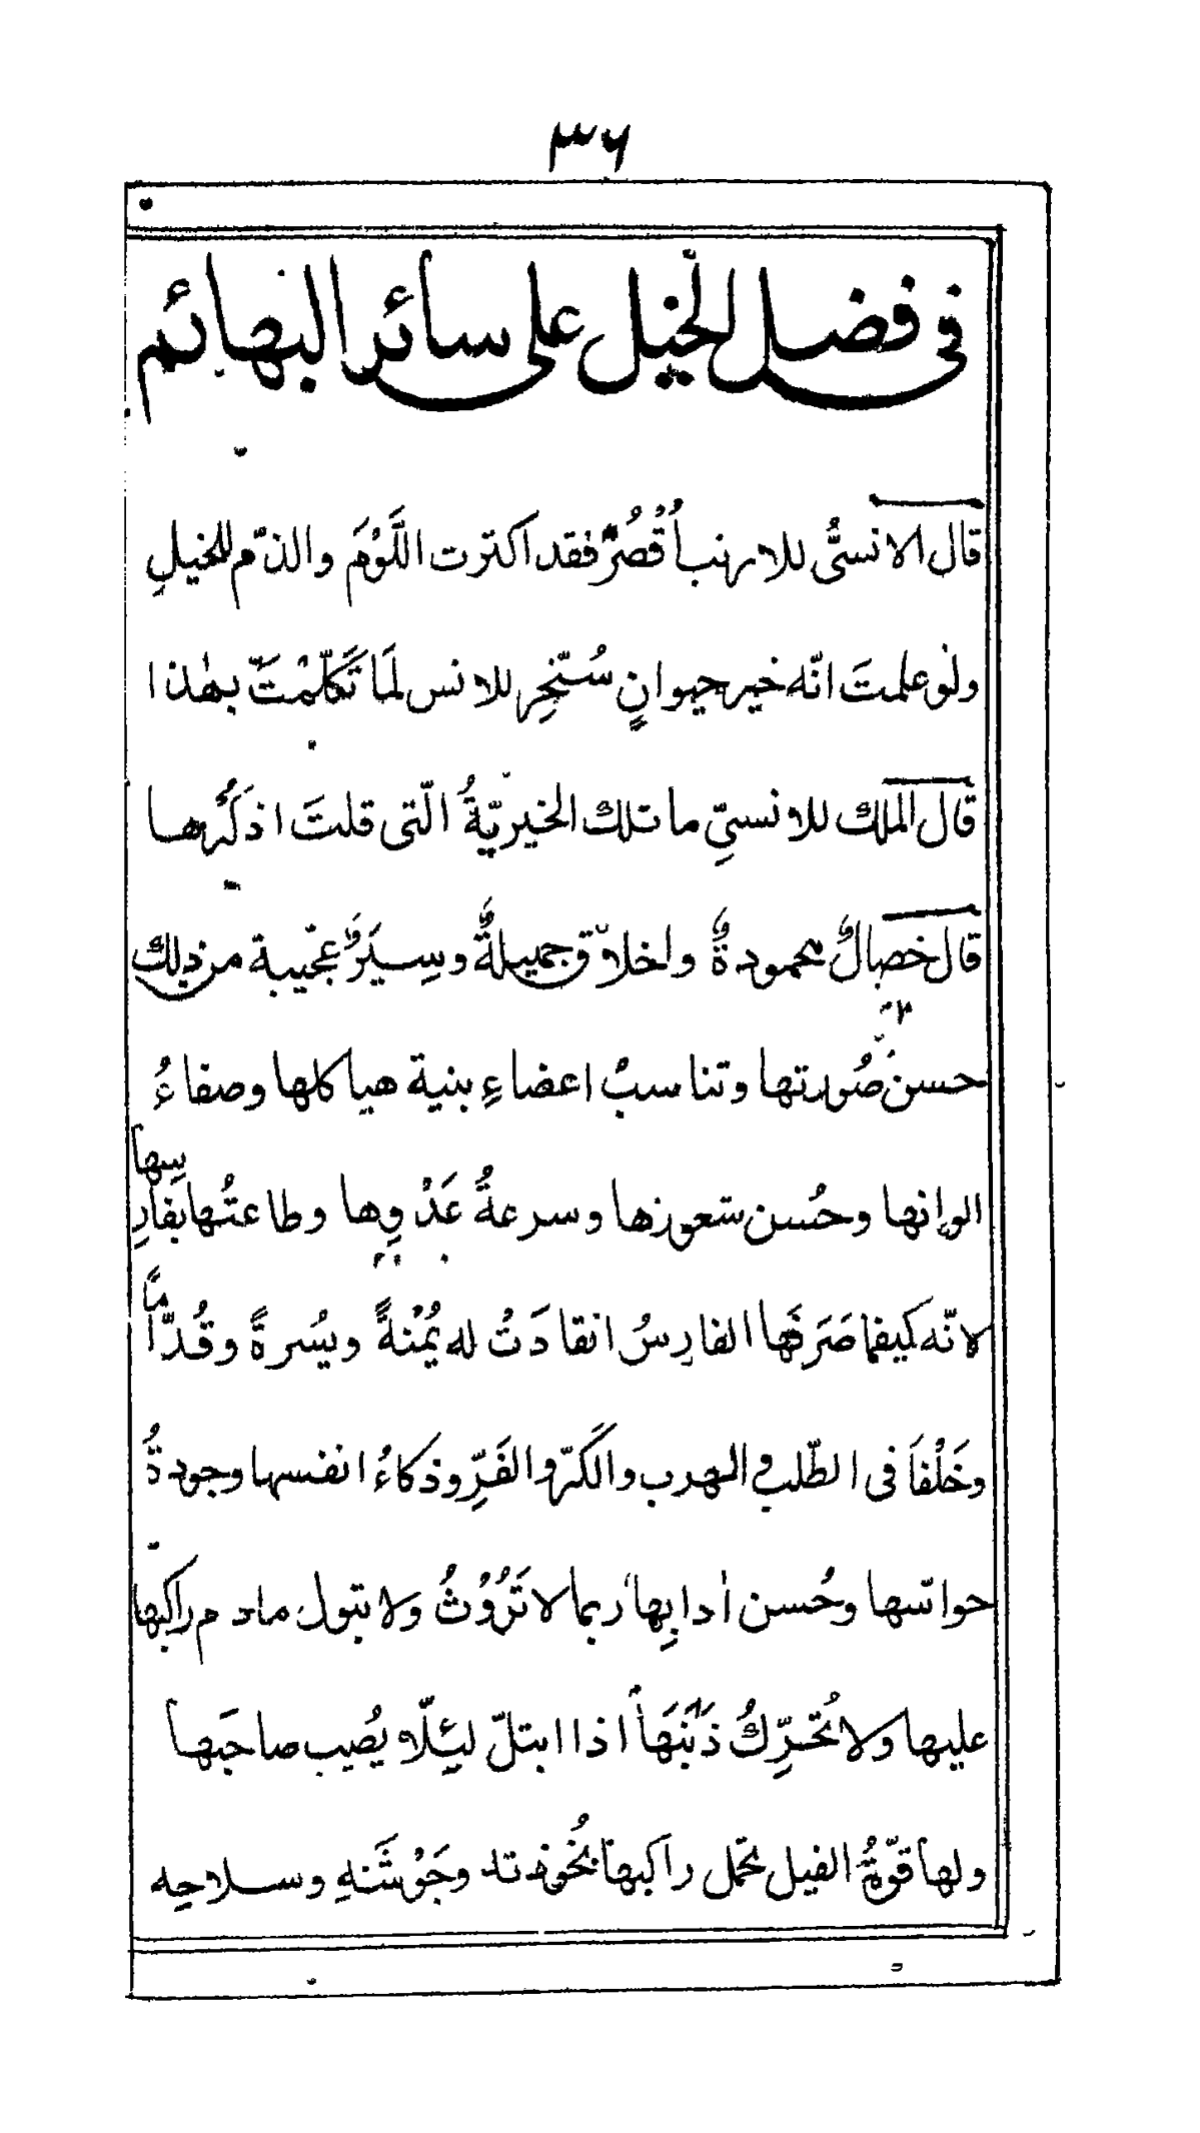 ٣٦
فى فضل الخيل على سائر البهائم
قال الانسىُّ للارنب اُقْصُرْ فقد اكثرت اللَّوْمَ والذّم للخيلِ
ولو علمتَ انّه خير حيوانٍ سُخِّر للانس لَمَا تَكلّمْتَ بهٰذا
قال الملك للانسىِّ ما تلك الخيريّةُ الّتى قلتَ اذكُرها
قال خصالٌ محمودةٌ واخلاق جميلةٌ وسِيَرٌ عجيبة من ذلك
حسن صُورتها وتناسبُ اعضاءِ بنية هياكلها وصفاءُ
الوانها وحُسن شعورها وسرعةُ عَدْوِها وطاعتُها بفارِسِها
لانّه كيفما صَرَفَها الفارِسُ انقادَتْ له يُمْنةً ويسُرةً وقُدّاماً
وخَلْفاً فى الطّلب والهرب والكَرّ والفَرِّ وذكاءُ انفسها وجودةُ
حواسّها وحُسن اٰدابِها ربما لا تَرُوْثُ ولا تبول مادم راكبها
عليها ولا تُحَرِّكُ ذَنَبَها اذا ابتلّ ليئلّا يُصيب صاحَبها
ولها قوّةُ الفيل تحمل راكبها بخُوذته وجَوْشَنهِ وسلاحِه